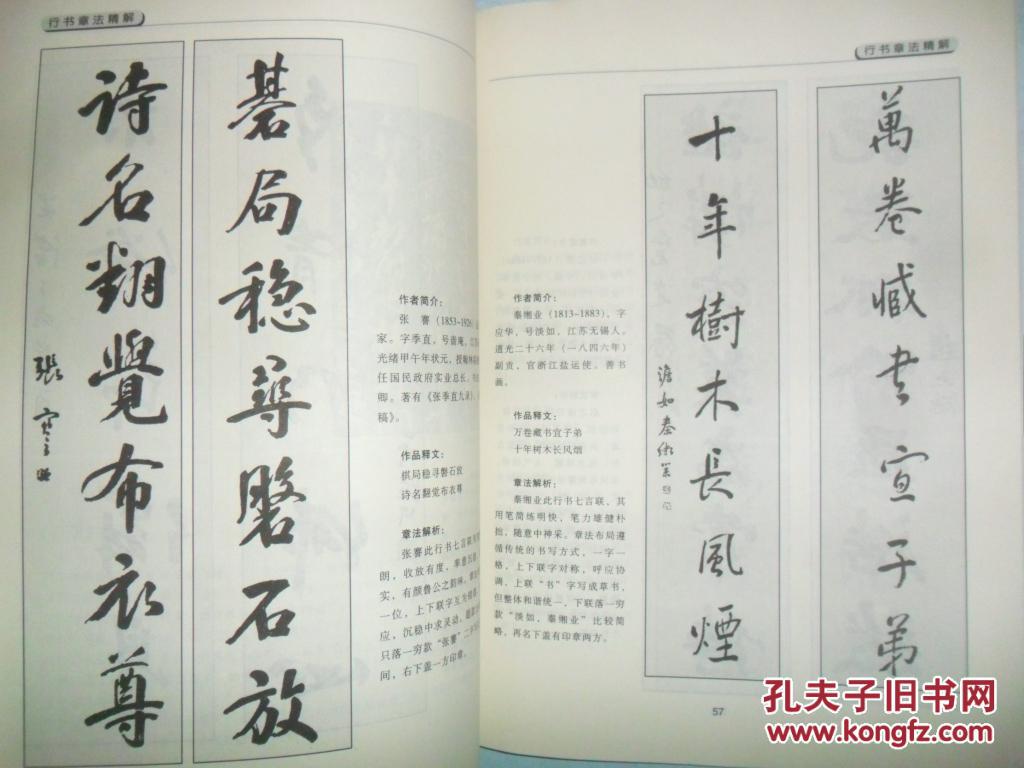 行书章法精解
碁局稳尋磐石放
诗名翻覺布衣尊
張謇
作者简介：
张 謇（1853~1926）
家。字季直，号啬庵，江苏
光绪甲午年状元，授翰林
任国民政府实业总长，
卿。著有《张季直九录》、
稿》。
作品释文：
棋局稳寻磐石放
诗名翻觉布衣尊
章法解析：
张謇此行书七言联
朗，收放有度，率意
实，有颜鲁公之韵味，
一位，上下联字互为
应，沉稳中求灵动，
只落一穷款“张謇”二字
间，右下盖一方印章。
行书章法精解
萬卷臧书宣子弟
十年樹木長風煙
澹如秦缃業
作者简介：
秦缃业（1813~1883），字
应华，号淡如，江苏无锡人。
道光二十六年（一八四六年）
副贡，官浙江盐运使。善书
画。
作品释文：
万卷藏书宜子弟
十年树木长风烟
章法解析：
秦缃业此行书七言联，其
用笔简练明快，笔力雄健朴
拙，随意中神采。章法布局遵
循传统的书写方式，一字一
格，上下联字对称，呼应协
调，上联“书”字写成草书，
但整体和谐统一，下联落一穷
款“淡如，秦缃业”比较简
略，再名下盖有印章两方。
57
孔夫子旧书网
www.kongfz.com